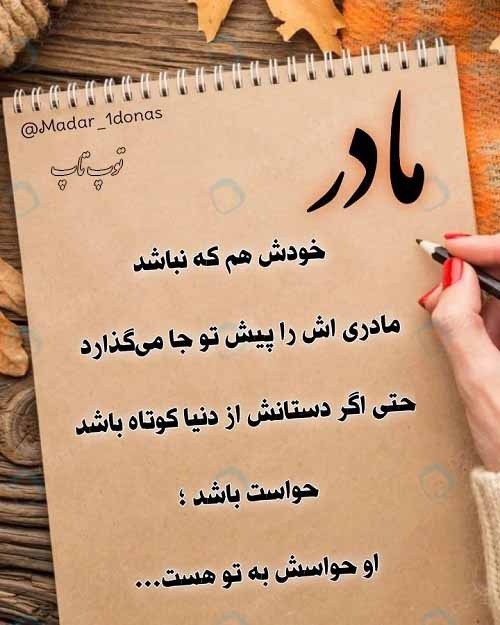 @Madar_1donas
توپ تاپ
مادر
خودش هم که نباشد
مادری اش را پیش تو جا می‌گذارد
حتی اگر دستانش از دنیا کوتاه باشد
حواست باشد ؛
او حواسش به تو هست...